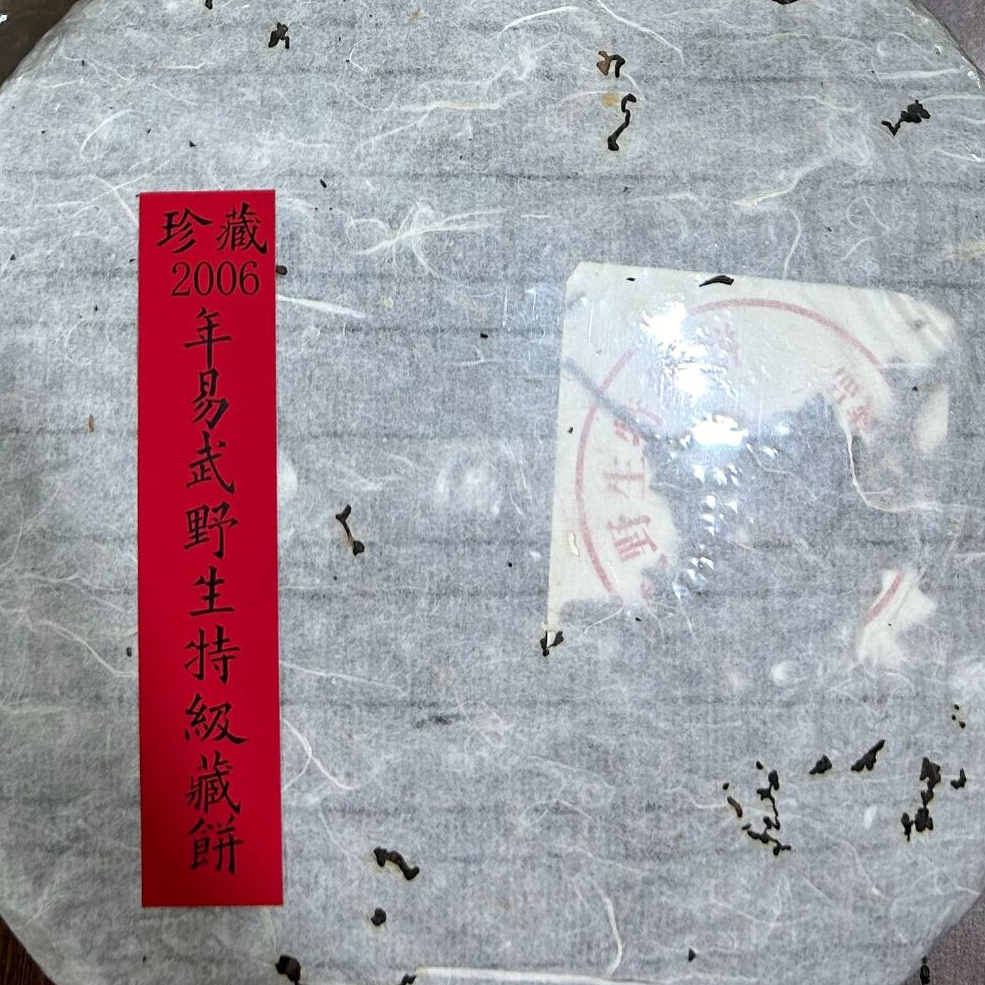 珍藏
2006
年易武野生特級藏餅
野生